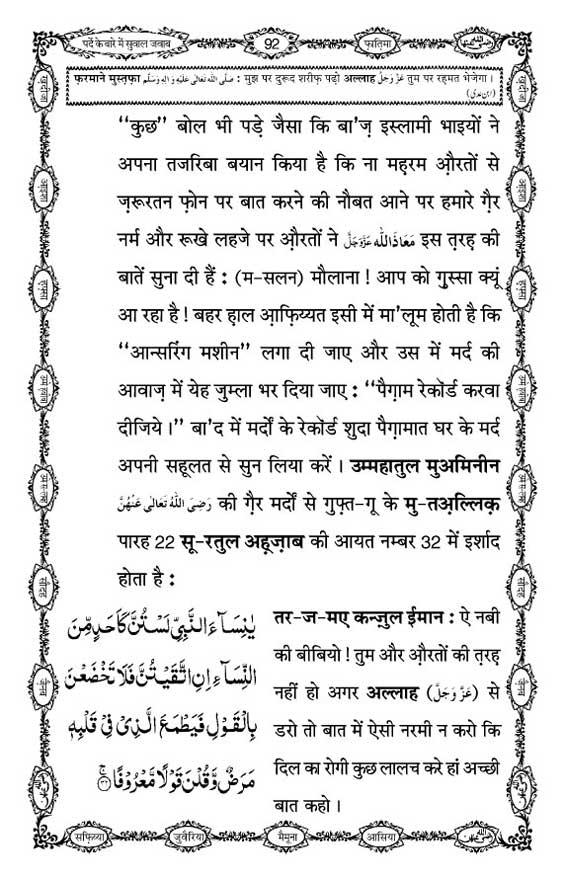 पर्दे के बारे में सुवाल जवाब
92
फ़ातिमा
फ़रमाने मुस्तफ़ा صَلَّى اللّٰهُ تَعَالٰى عَلَيْهِ وَاٰلِهٖ وَسَلَّم : मुझ पर दुरूद शरीफ़ पढ़ो अल्लाह عَزَّ وَجَلَّ तुम पर रहमत भेजेगा ।
(ابن عدی)
‘‘कुछ’’ बोल भी पड़े जैसा कि बा'ज़ इस्लामी भाइयों ने
अपना तजरिबा बयान किया है कि ना महरम औ़रतों से
ज़रूरतन फ़ोन पर बात करने की नौबत आने पर हमारे ग़ैर
नर्म और रूखे लहजे पर औ़रतों ने مَعَاذَاللّٰه عَزَّوَجَلَّ इस त़रह़ की
बातें सुना दी हैं : (म-सलन) मौलाना ! आप को ग़ुस्सा क्यूं
आ रहा है ! बहर ह़ाल आ़फ़िय्यत इसी में मा'लूम होती है कि
‘‘आन्सरिंग मशीन’’ लगा दी जाए और उस में मर्द की
आवाज़ में येह जुम्ला भर दिया जाए : ‘‘पैग़ाम रेकॉर्ड करवा
दीजिये ।’’ बा'द में मर्दों के रेकॉर्ड शुदा पैग़ामात घर के मर्द
अपनी सहूलत से सुन लिया करें । उम्महातुल मुअमिनीन
رَضِىَ اللّٰهُ تَعَالٰى عَنْهُنَّ की ग़ैर मर्दों से गुफ़्त-गू के मु-तअ़ल्लिक़
पारह 22 सू-रतुल अह़ज़ाब की आयत नम्बर 32 में इर्शाद
होता है :
يٰنِسَآءَ النَّبِىِّ لَسْتُنَّ كَاَحَدٍ مِّنَ
النِّسَآءِ اِنِ اتَّقَيْتُنَّ فَلَا تَخْضَعْنَ
بِالْقَوْلِ فَيَطْمَعَ الَّذِىْ فِىْ قَلْبِهٖ
مَرَضٌ وَّقُلْنَ قَوْلًا مَّعْرُوْفًا
तर-ज-मए कन्ज़ुल ईमान : ऐ नबी
की बीबियो ! तुम और औ़रतों की त़रह़
नहीं हो अगर अल्लाह (عَزَّ وَجَلَّ) से
डरो तो बात में ऐसी नरमी न करो कि
दिल का रोगी कुछ लालच करे हां अच्छी
बात कहो ।
सफ़िय्या
जुवैरिया
मैमूना
आसिया